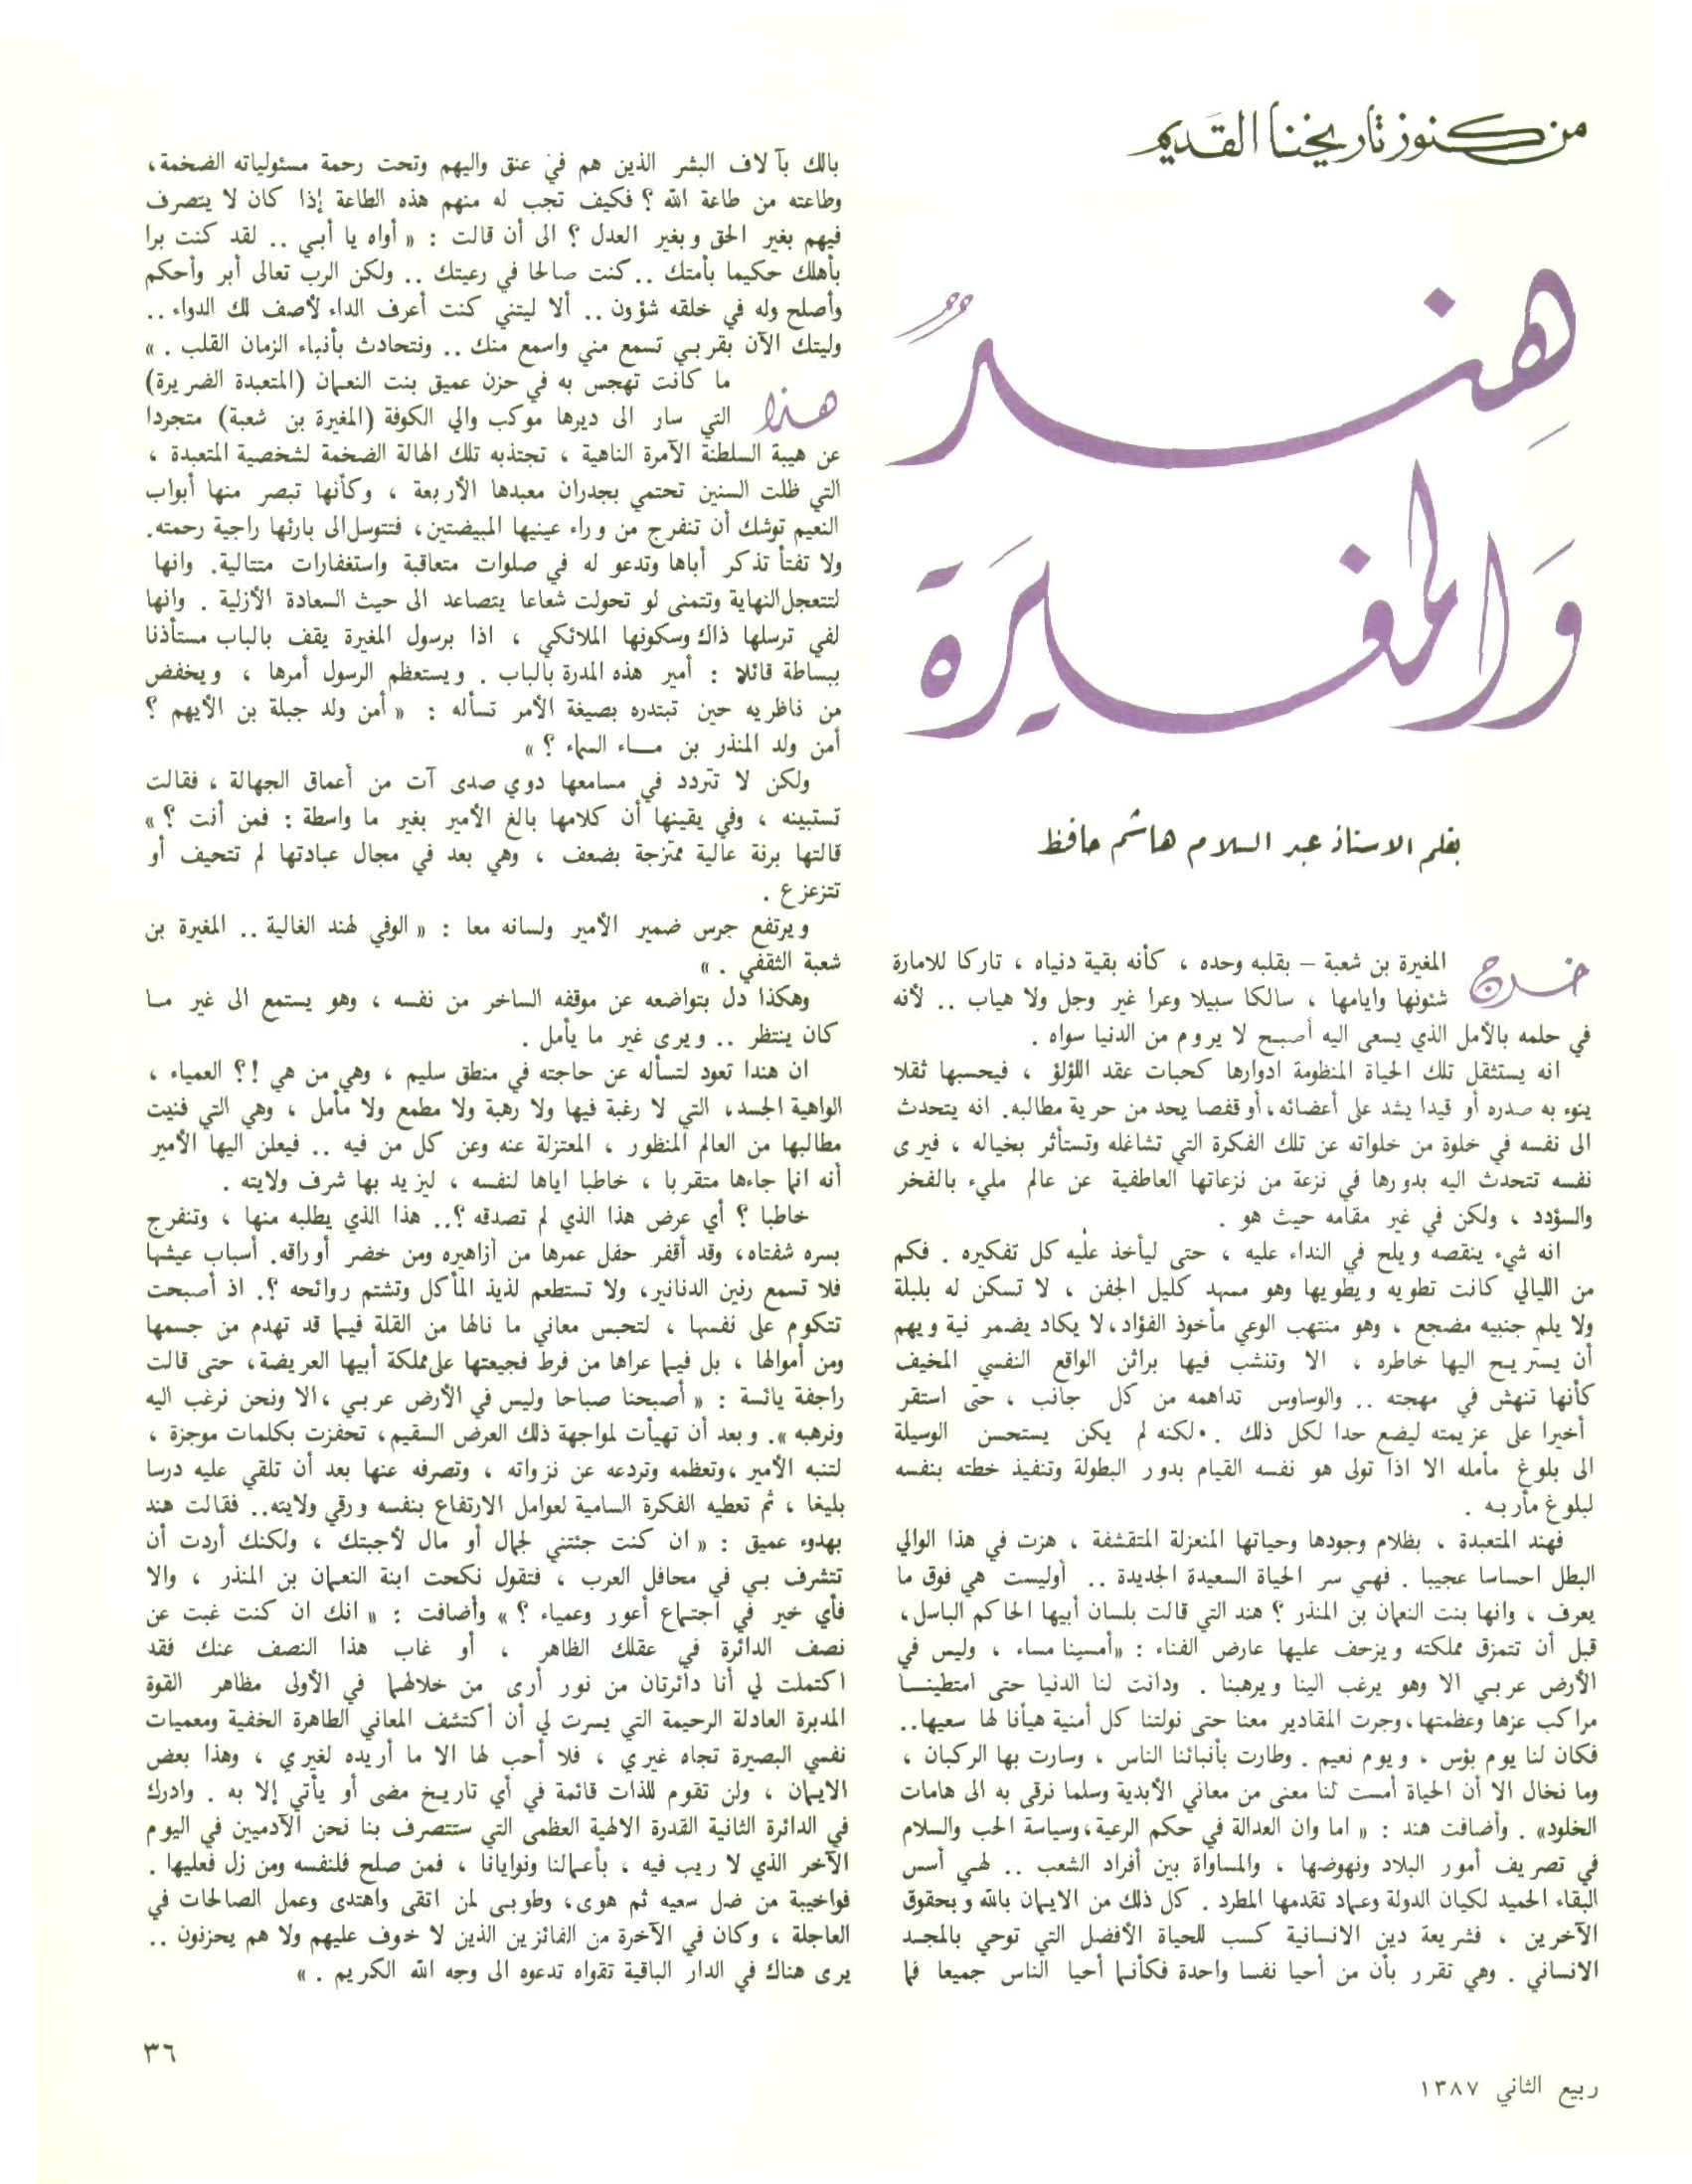 من كنوز تاريخنا القديم
هِندٌ
وَالمغيرَة
بقلم الاستاذ عبد السلام هاشم حافظ
خرج المغيرة بن شعبة – بقلبه وحده ، كأنه بقية دنياه ، تاركا للامارة
شئونها وايامها ، سالكا سبيلا وعرا غير وجل ولا هياب .. لأنه
في حلمه بالأمل الذي يسعى اليه أصبح لا يروم من الدنيا سواه .
انه يستثقل تلك الحياة المنظومة ادوارها كحبات عقد اللؤلؤ ، فيحسبها ثقلا
ينوء به صدره أو قيدا يشد على أعضائه، أو قفصا يحد من حرية مطالبه. انه يتحدث
الى نفسه في خلوة من خلواته عن تلك الفكرة التي تشاغله وتستأثر بخياله ، فيرى
نفسه تتحدث اليه بدورها في نزعة من نزعاتها العاطفية عن عالم مليء بالفخر
والسؤدد ، ولكن في غير مقامه حيث هو .
انه شيء ينقصه ويلح في النداء عليه ، حتى ليأخذ عليه كل تفكيره . فكم
من الليالي كانت تطويه ويطويها وهو مسهد كليل الجفن ، لا تسكن له بلبلة
ولا يلم جنبيه مضجع ، وهو منتهب الوعي مأخوذ الفؤاد، لا يكاد يضمر نية ويهم
أن يستريح اليها خاطره ، الا وتنشب فيها براثن الواقع النفسي المخيف
كأنها تنهش في مهجته .. والوساوس تداهمه من كل جانب ، حتى استقر
أخيرا على عزيمته ليضع حدا لكل ذلك . . لكنه لم يكن يستحسن الوسيلة
الى بلوغ مأمله الا اذا تولى هو نفسه القيام بدور البطولة وتنفيذ خطته بنفسه
لبلوغ مأربه .
فهند المتعبدة ، بظلام وجودها وحياتها المنعزلة المتقشفة ، هزت في هذا الوالي
البطل احساسا عجيبا . فهي سر الحياة السعيدة الجديدة .. أوليست هي فوق ما
يعرف ، وانها بنت النعمان بن المنذر ؟ هند التي قالت بلسان أبيها الحاكم الباسل،
قبل أن تتمزق مملكته ويزحف عليها عارض الفناء : «أمسينا مساء ، وليس في
الأرض عربي الا وهو يرغب الينا ويرهبنا . ودانت لنا الدنيا حتى امتطينا
مراكب عزها وعظمتها، وجرت المقادير معنا حتى نولتنا كل أمنية هيأنا لها سعيها..
فكان لنا يوم بؤس ، ويوم نعيم . وطارت بأنبائنا الناس ، وسارت بها الركبان ،
وما نخال الا أن الحياة أمست لنا معنى من معاني الأبدية وسلما نرقى به الى هامات
الخلود» . وأضافت هند : « اما وان العدالة في حكم الرعية، وسياسة الحب والسلام
في تصريف أمور البلاد ونهوضها ، والمساواة بين أفراد الشعب .. لهي أسس
البقاء الحميد لكيان الدولة وعماد تقدمها المطرد . كل ذلك من الايمان بالله وبحقوق
الآخرين ، فشريعة دين الانسانية كسب للحياة الأفضل التي توحي بالمجد
الانساني . وهي تقرر بأن من أحيا نفسا واحدة فكأنما أحيا الناس جميعا فما
بالك بآلاف البشر الذين هم في عنق واليهم وتحت رحمة مسئولياته الضخمة،
وطاعته من طاعة الله ؟ فكيف تجب له منهم هذه الطاعة إذا كان لا يتصرف
فيهم بغير الحق وبغير العدل ؟ الى أن قالت : « أواه يا أبي .. لقد كنت برا
بأهلك حكيما بأمتك .. كنت صالحا في رعيتك .. ولكن الرب تعالى أبر وأحكم
وأصلح وله في خلقه شؤون .. ألا ليتني كنت أعرف الداء لأصف لك الدواء ..
وليتك الآن بقربي تسمع مني واسمع منك .. ونتحادث بأنباء الزمان القلب . »
هذا ما كانت تهجس به في حزن عميق بنت النعمان (المتعبدة الضريرة)
التي سار الى ديرها موكب والي الكوفة (المغيرة بن شعبة) متجردا
عن هيبة السلطنة الآمرة الناهية ، تجتذبه تلك الهالة الضخمة لشخصية المتعبدة ،
التي ظلت السنين تحتمي بجدران معبدها الأربعة ، وكأنها تبصر منها أبواب
النعيم توشك أن تنفرج من وراء عينيها المبيضتين، فتتوسل الى بارئها راجية رحمته.
ولا تفتأ تذكر أباها وتدعو له في صلوات متعاقبة واستغفارات متتالية. وانها
لتتعجل النهاية وتتمنى لو تحولت شعاعا يتصاعد الى حيث السعادة الأزلية . وانها
لفي ترسلها ذاك وسكونها الملائكي ، اذا برسول المغيرة يقف بالباب مستأذنا
ببساطة قائلا : أمير هذه المدرة بالباب . ويستعظم الرسول أمرها ، ويخفض
من ناظريه حين تبتدره بصيغة الأمر تسأله : « أمن ولد جبلة بن الأيهم ؟
أمن ولد المنذر بن ماء السماء ؟ »
ولكن لا تتردد في مسامعها دوي صدى آت من أعماق الجهالة ، فقالت
تستبينه ، وفي يقينها أن كلامها بالغ الأمير بغير ما واسطة : فمن أنت ؟ »
قالتها برنة عالية ممتزجة بضعف ، وهي بعد في مجال عبادتها لم تتحيف أو
تتزعزع .
ويرتفع جرس ضمير الأمير ولسانه معا : « الوفي لهند الغالية .. المغيرة بن
شعبة الثقفي . »
وهكذا دل بتواضعه عن موقفه الساخر من نفسه ، وهو يستمع الى غير ما
كان ينتظر .. ويرى غير ما يأمل .
ان هندا تعود لتسأله عن حاجته في منطق سليم ، وهي من هي !؟ العمياء ،
الواهية الجسد، التي لا رغبة فيها ولا رهبة ولا مطمع ولا مأمل ، وهي التي فنيت
مطالبها من العالم المنظور ، المعتزلة عنه وعن كل من فيه .. فيعلن اليها الأمير
أنه انما جاءها متقربا ، خاطبا اياها لنفسه ، ليزيد بها شرف ولايته .
خاطبا ؟ أي عرض هذا الذي لم تصدقه ؟.. هذا الذي يطلبه منها ، وتنفرج
بسره شفتاه، وقد أقفر حفل عمرها من أزاهيره ومن خضر أوراقه. أسباب عيشها
فلا تسمع رنين الدنانير، ولا تستطعم لذيذ المأكل وتشتم روائحه ؟. اذ أصبحت
تتكوم على نفسها ، لتحبس معاني ما نالها من القلة فيما قد تهدم من جسمها
ومن أموالها ، بل فيما عراها من فرط فجيعتها على مملكة أبيها العريضة، حتى قالت
راجفة يائسة : « أصبحنا صباحا وليس في الأرض عربي ، الا ونحن نرغب اليه
ونرهبه ». وبعد أن تهيأت لمواجهة ذلك العرض السقيم، تحفزت بكلمات موجزة ،
لتنبه الأمير ، وتعظمه وتردعه عن نزواته ، وتصرفه عنها بعد أن تلقي عليه درسا
بليغا ، ثم تعطيه الفكرة السامية لعوامل الارتفاع بنفسه ورقي ولايته.. فقالت هند
بهدوء عميق : « ان كنت جئتني لجمال أو مال لأجبتك ، ولكنك أردت أن
تتشرف بي في محافل العرب ، فتقول نكحت ابنة النعمان بن المنذر ، والا
فأي خير في اجتماع أعور وعمياء ؟ » وأضافت : « انك ان كنت غبت عن
نصف الدائرة في عقلك الظاهر ، أو غاب هذا النصف عنك فقد
اكتملت لي أنا دائرتان من نور أرى من خلالهما في الأولى مظاهر القوة
المدبرة العادلة الرحيمة التي يسرت لي أن أكتشف المعاني الطاهرة الخفية ومعميات
نفسي البصيرة تجاه غيري ، فلا أحب لها الا ما أريده لغيري ، وهذا بعض
الايمان ، ولن تقوم للذات قائمة في أي تاريخ مضى أو يأتي إلا به . وادرك
في الدائرة الثانية القدرة الالهية العظمى التي ستتصرف بنا نحن الآدميين في اليوم
الآخر الذي لا ريب فيه ، بأعمالنا ونوايانا ، فمن صلح فلنفسه ومن زل فعليها .
فواخيبة من ضل سعيه ثم هوى، وطوبى لمن اتقى واهتدى وعمل الصالحات في
العاجلة ، وكان في الآخرة من الفائزين الذين لا خوف عليهم ولا هم يحزنون ..
يرى هناك في الدار الباقية تقواه تدعوه الى وجه الله الكريم . »
٣٦
ربيع الثاني ١٣٨٧